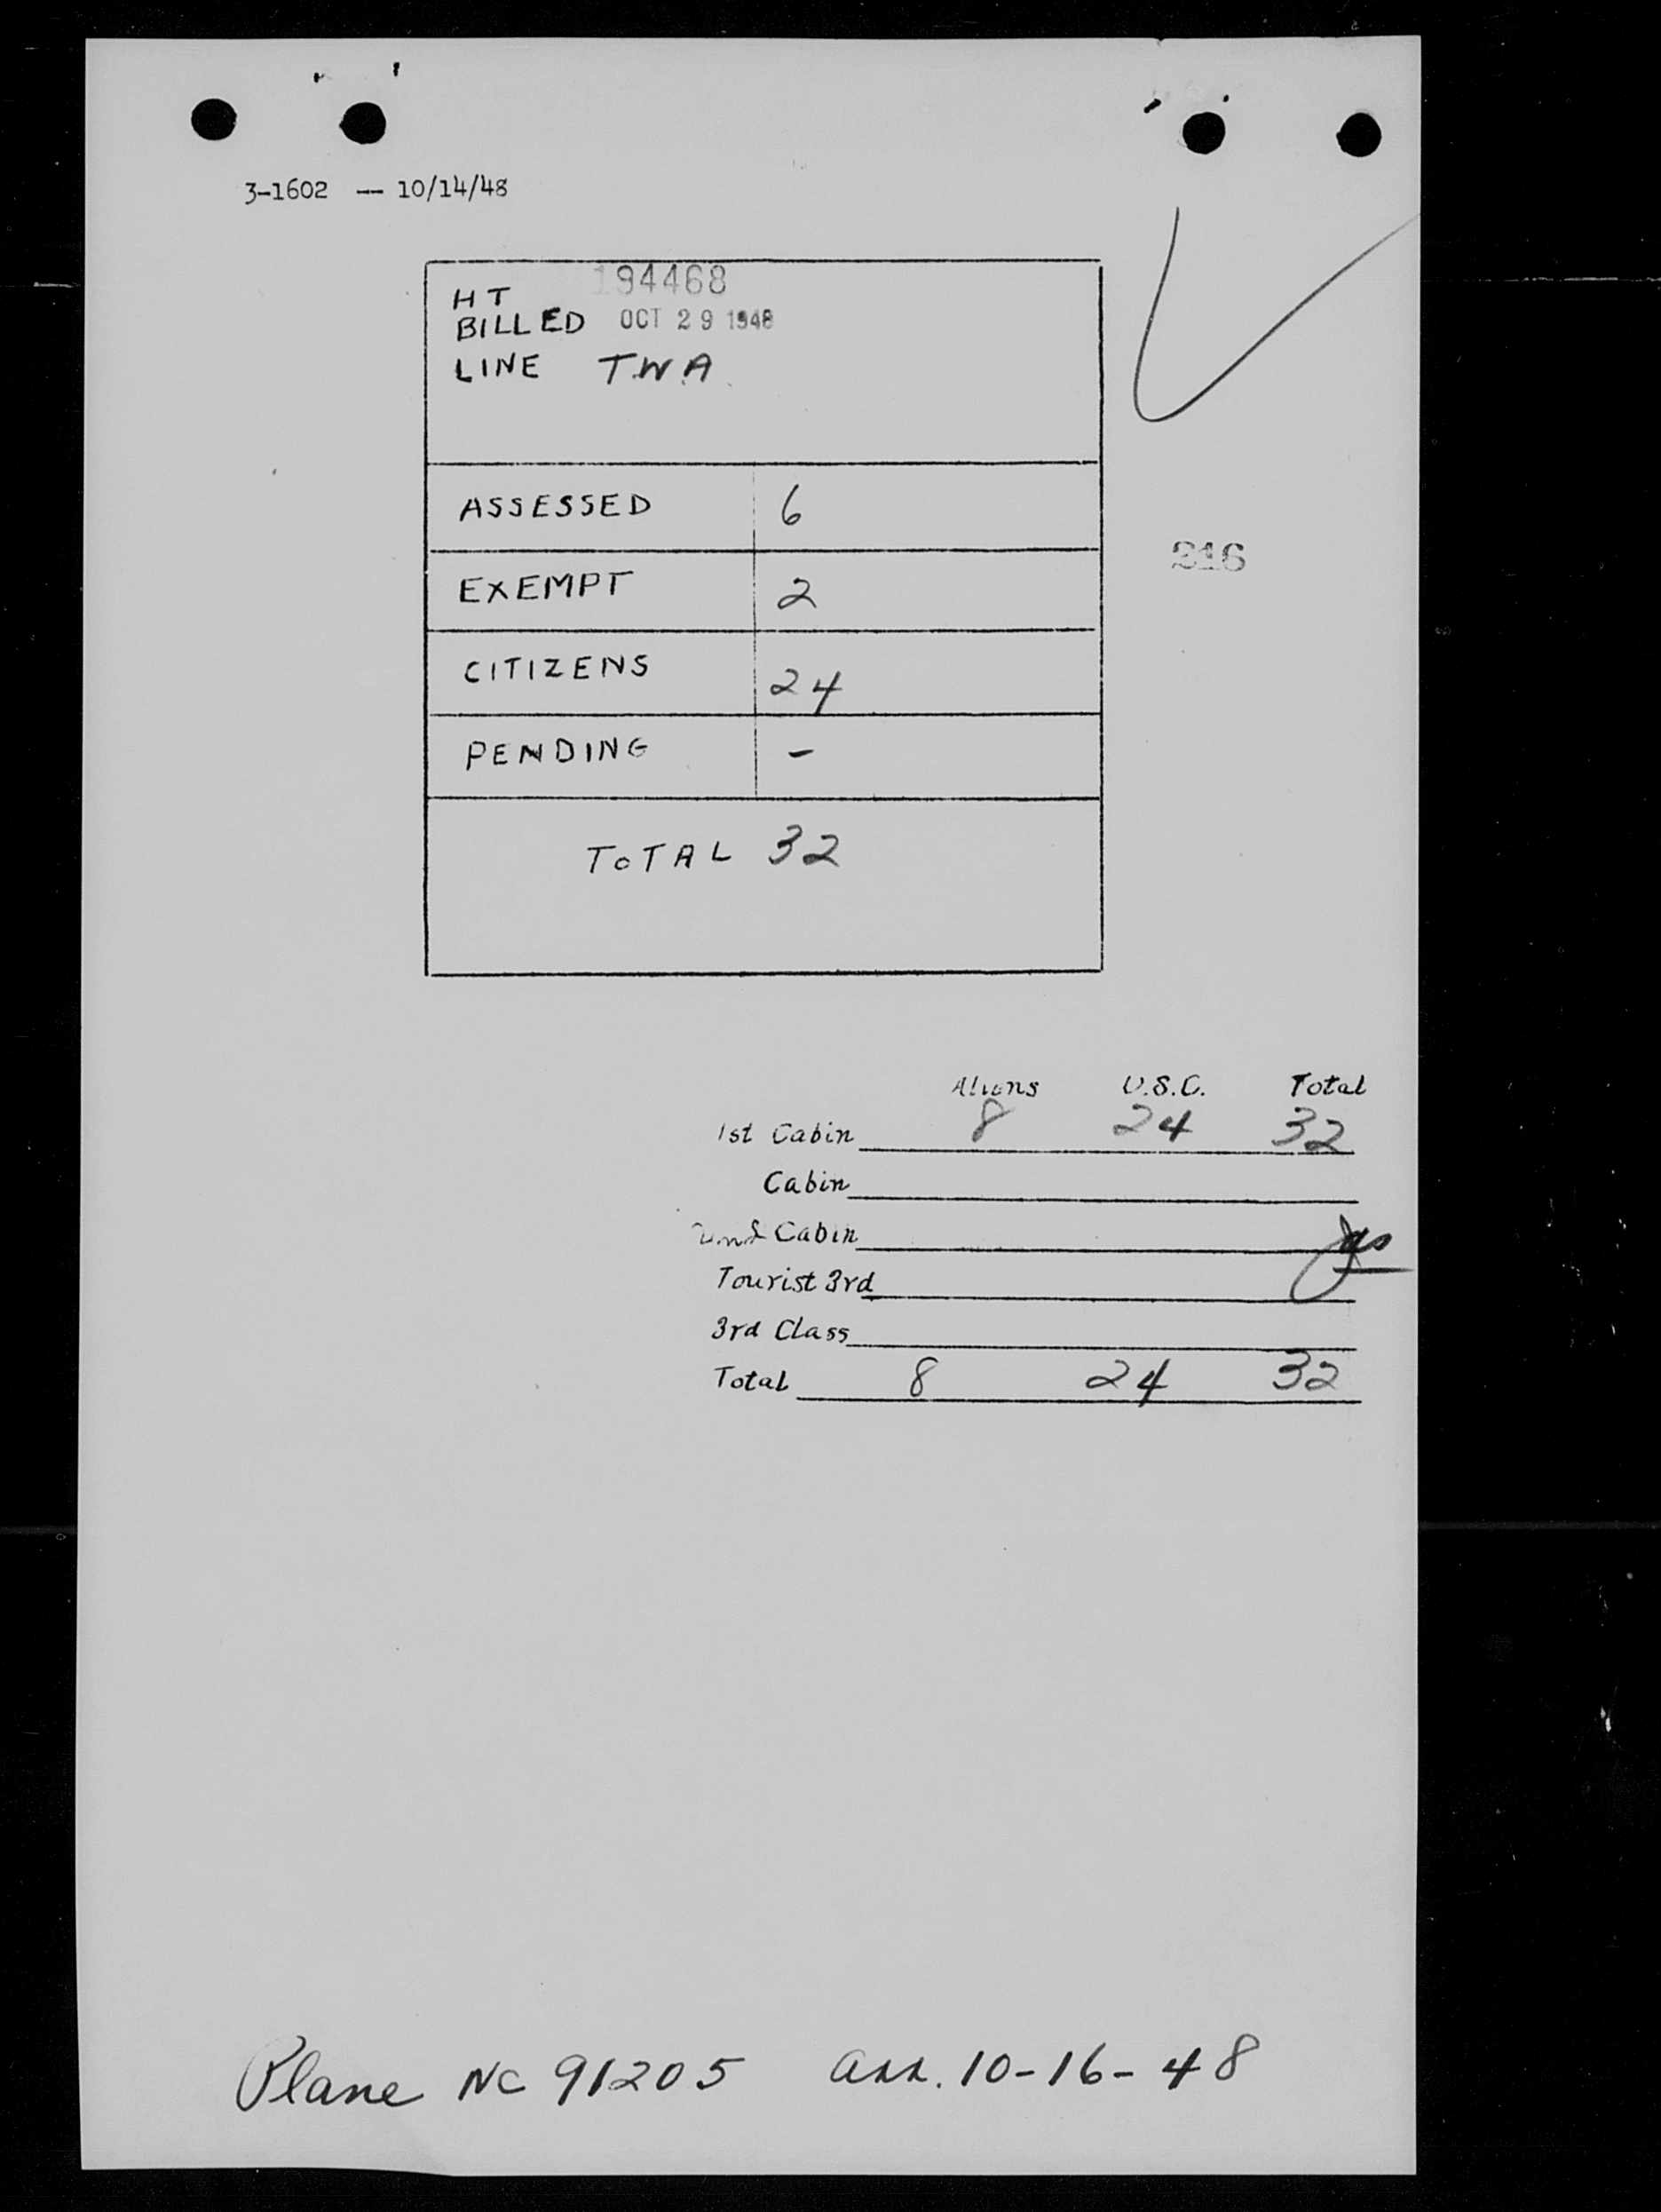 3-1602 -- 10/14/48
194468
HT
BILLED OCT 29 1948
LINE T.W.A.
ASSESSED 6
EXEMPT 2
CITIZENS 24
PENDING -
316
TOTAL 32
Aliens U.S.C. Total
1st Cabin 8 24 32
Cabin
2nd Cabin
Tourist 3rd
3rd Class
Total 8 24 32
Plane NC 91205 arr. 10-16-48